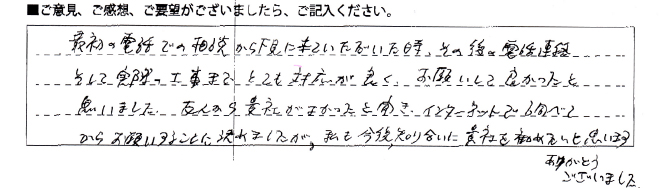 ■ご意見、ご感想、ご要望がございましたら、ご記入ください。
最初の電話での相談から下見に来ていただいた時、その後の電話連絡
そして実際の工事まで とても対応が良く、お願いして良かったと
思いました。友人から貴社がよかったと聞き、インターネットで調べて
からお願いすることに決めましたが、私も今後知り合いに貴社を勧めたいと思います
ありがとう
ございました。